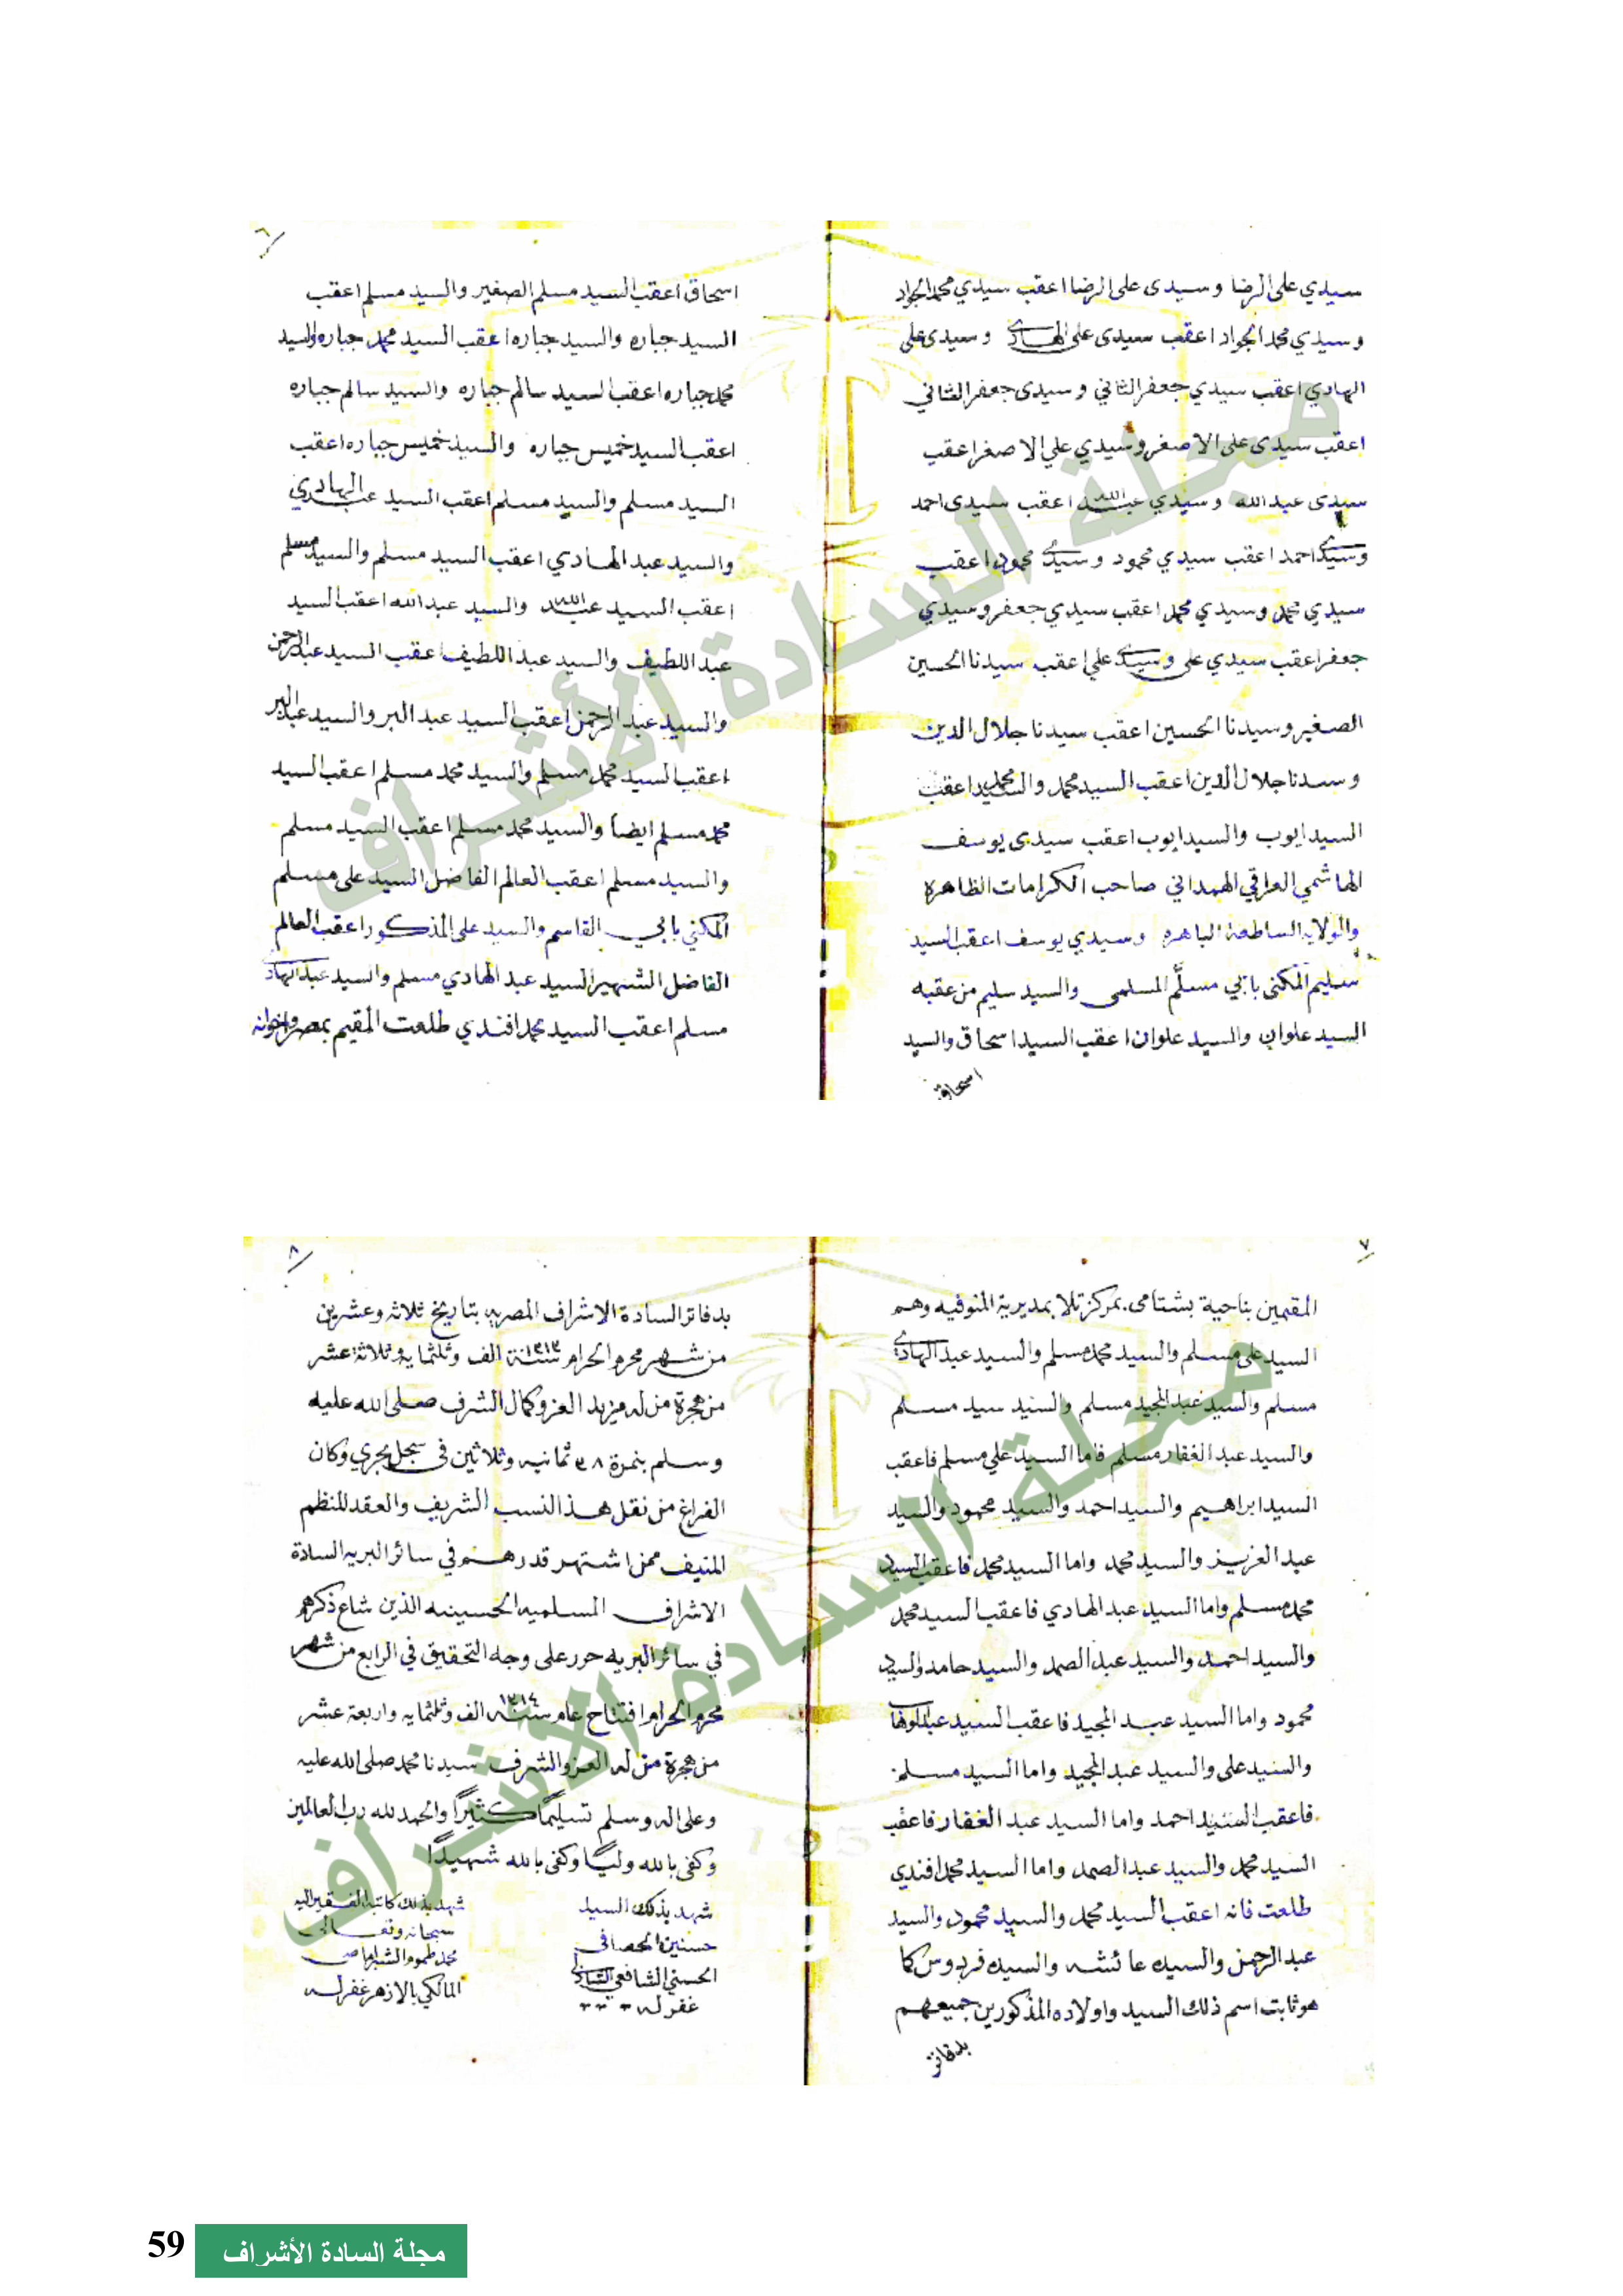 سيدي على الرضا وسيدى على الرضا اعقب سيدي محمد الجواد
وسيدي محمد الجواد اعقب سيدى على الهادي وسيدى على
الهادي اعقب سيدي جعفر الثاني وسيدى جعفر الثاني
اعقب سيدى على الاصغر وسيدي علي الاصغر اعقب
سيدى عبد الله وسيدي عبد الله اعقب سيدى احمد
وسيدي احمد اعقب سيدي محمود وسيدي محمود اعقب
سيدي محمد وسيدي محمد اعقب سيدي جعفر وسيدي
جعفر اعقب سيدي على وسيدي علي اعقب سيدنا الحسين
الصغير وسيدنا الحسين اعقب سيدنا جلال الدين
وسيدنا جلال الدين اعقب السيد محمد والسيد محمد اعقب
السيد ايوب والسيد ايوب اعقب سيدى يوسف
الهاشمي العراقي الهمداني صاحب الكرامات الظاهرة
والولايه الساطعة الباهره وسيدي يوسف اعقب السيد
سليم المكنى بابي مسلَّم المسلمى والسيد سليم من عقبه
السيد علوان والسيد علوان اعقب السيد اسحاق والسيد
اسحاق
٦
اسحاق اعقب السيد مسلم الصغير والسيد مسلم اعقب
السيد جباره والسيد جباره اعقب السيد محمد جباره والسيد
محمد جباره اعقب السيد سالم جباره والسيد سالم جباره
اعقب السيد خميس جباره والسيد خميس جباره اعقب
السيد مسلم والسيد مسلم اعقب السيد عبد الهادي
والسيد عبد الهادي اعقب السيد مسلم والسيد مسلم
اعقب السيد عبد الله والسيد عبد الله اعقب السيد
عبد اللطيف والسيد عبد اللطيف اعقب السيد عبد الرحمن
والسيد عبد الرحمن اعقب السيد عبد البر والسيد عبد البر
اعقب السيد محمد مسلم والسيد محمد مسلم اعقب السيد
محمد مسلم ايضا والسيد محمد مسلم اعقب السيد مسلم
والسيد مسلم اعقب العالم الفاضل السيد على مسلم
المكني بابي القاسم والسيد على المذكور اعقب العالم
الفاضل الشهير السيد عبد الهادي مسلم والسيد عبد الهادي
مسلم اعقب السيد محمد افندي طلعت المقيم بمصر واخوانه
٧
المقيمين بناحية بشتامى بمركز تلا بمديرية المنوفيه وهم
السيد على مسلم والسيد محمد مسلم والسيد عبد الهادي
مسلم والسيد عبد المجيد مسلم والسيد سيد مسلم
والسيد عبد الغفار مسلم فاما السيد علي مسلم فاعقب
السيد ابراهيم والسيد احمد والسيد محمود والسيد
عبد العزيز والسيد محمد واما السيد محمد فاعقب السيد
محمد مسلم واما السيد عبد الهادي فاعقب السيد محمد
والسيد احمد والسيد عبد الصمد والسيد حامد والسيد
محمود واما السيد عبد المجيد فاعقب السيد عبد الوهاب
والسيد على والسيد عبد المجيد واما السيد مسلم
فاعقب السيد احمد واما السيد عبد الغفار فاعقب
السيد محمد والسيد عبد الصمد واما السيد محمد افندي
طلعت فانه اعقب السيد محمد والسيد محمود والسيد
عبد الرحمن والسيده عائشه والسيده فردوس كما
هو ثابت اسم ذلك السيد واولاده المذكورين جميعهم
بدفاتر
٨
بدفاتر السادة الاشراف المصريه بتاريخ ثلاثه وعشرين
من شهر محرم الحرام سنة ١٣١٣ الف وثلثمايه وثلاثة عشر
من هجرة من له مزيد العز وكمال الشرف صلى الله عليه
وسلم بنمرة ٣٨ ثمانيه وثلاثين في سجل بجري وكان
الفراغ من نقل هذا النسب الشريف والعقد المنظم
المنيف ممن اشتهر قدرهم في سائر البريه السادة
الاشراف المسلميه الحسينيه الذين شاع ذكرهم
في سائر البريه حرر على وجه التحقيق في الرابع من شهر
محرم الحرام افتتاح عام سنة ١٣١٤ الف وثلثمايه واربعة عشر
من هجرة من له العز والشرف سيدنا محمد صلى الله عليه
وعلى اله وسلم تسليمًا كثيرًا والحمد لله رب العالمين
وكفى بالله وليًا وكفى بالله شهيدًا
شهد بذلك السيد
حسنين الحصافي
الحسني الشافعي الشاذلي
غفر له
شهد بذلك كاتبه الفقير اليه
سبحانه وتعالى
محمد طموم الشبراماصى
المالكي بالازهر غفر له
مجلة السادة الأشراف
مجلة السادة الأشراف
59
مجلة السادة الأشراف